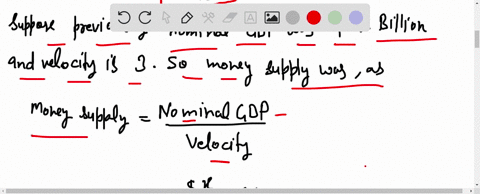 Suppose previous nominal GDP was Billion
and velocity is 3. So money supply was, as
Money supply = Nominal GDP
Velocity